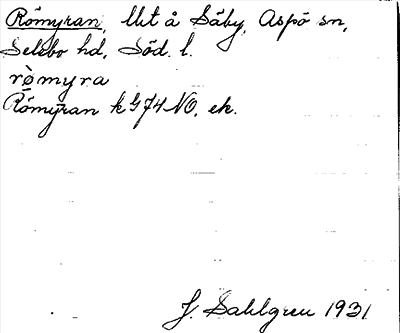 Römyran, Ukt å Säby, Aspö sn,
Selebo hd, Söd. l.
römyra
Römyran k G74 NO. ek.
J. Sahlgren 1931